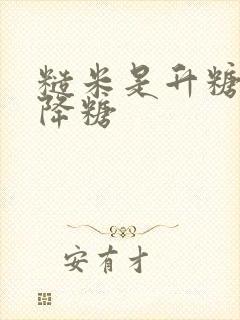 糙米是升糖
降糖
安有才